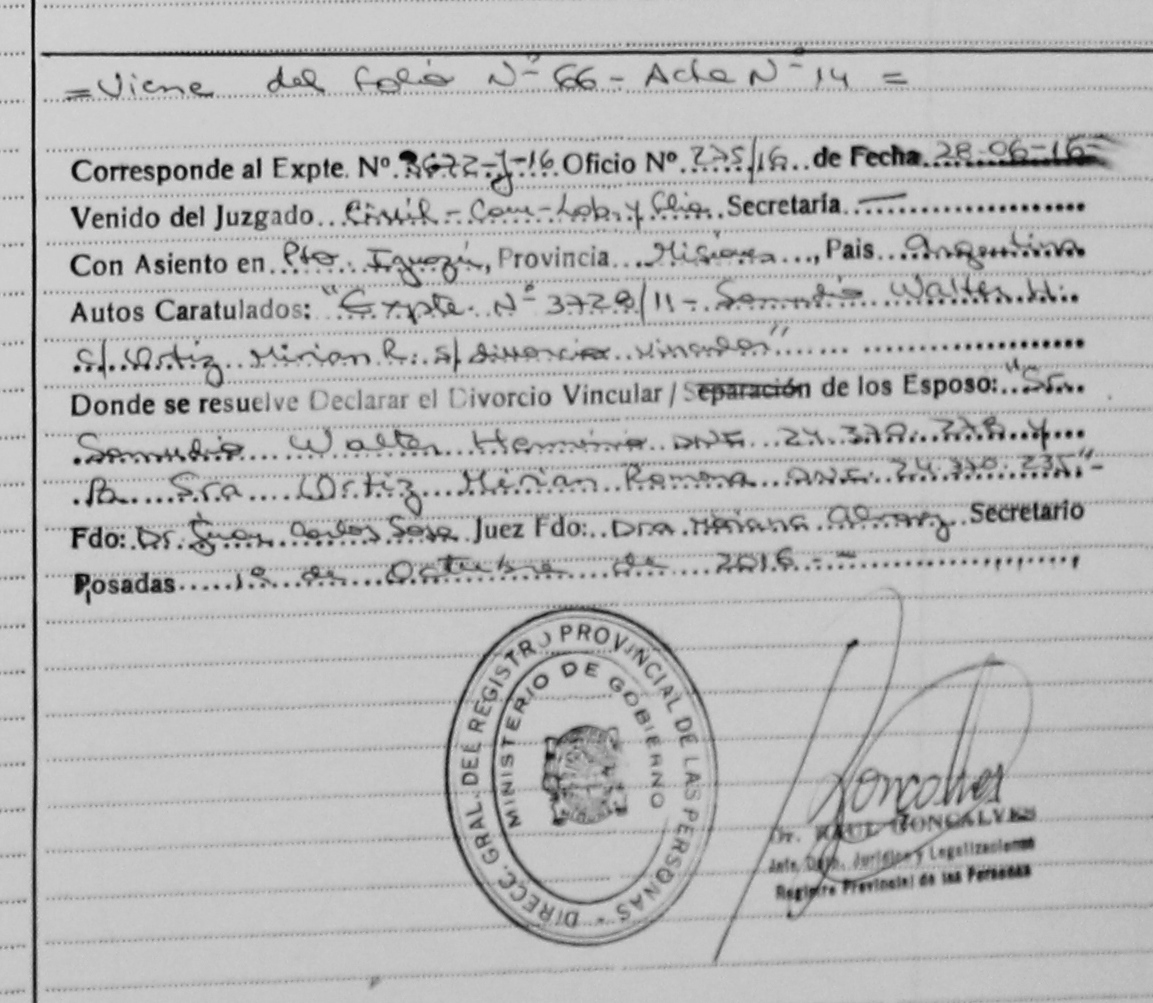 = Viene del folio Nº 66 - Acta Nº 14 =
Corresponde al Expte. Nº 3672-J-16 Oficio Nº 275/16 de Fecha 28-06-16-
Venido del Juzgado Civil - Com - Lab. y Flia. Secretaría —
Con Asiento en Pto. Iguazú, Provincia Misiones, Pais Argentina
Autos Caratulados: "Expte. Nº 3728/11 - Samudio Walter H.
c/ Ortiz Mirian R. s/ divorcio vincular"
Donde se resuelve Declarar el Divorcio Vincular / Separación de los Esposo: "Sr.
Samudio Walter Herminio DNI. 24.378. y
la Sra Ortiz Mirian Ramona DNI. 235"-
Fdo: Dr. Juan Carlos Sosa Juez Fdo: Dra Mariana Alvarez Secretario
Posadas 19 de Octubre de 2016.-
DIRECC. GRAL. DEL REGISTRO PROVINCIAL DE LAS PERSONAS
MINISTERIO DE GOBIERNO
Goncalves
Dr. RAUL GONCALVES
Jefe Dpto. Jurídico y Legalizaciones
Registro Provincial de las Personas